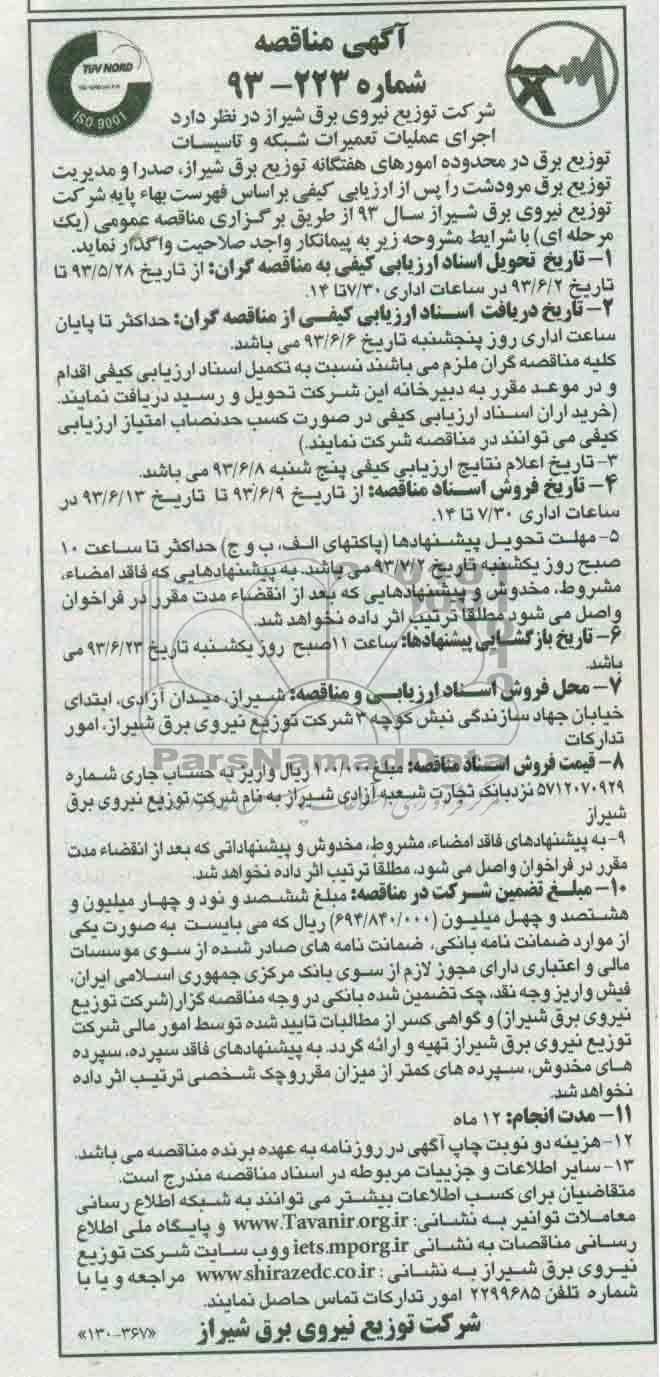 آگهی مناقصه
شماره ۲۲۳-۹۳
TUV NORD
ISO 9001
شرکت توزیع نیروی برق شیراز در نظر دارد
اجرای عملیات تعمیرات شبکه و تاسیسات
توزیع برق در محدوده امورهای هفتگانه توزیع برق شیراز، صدرا و مدیریت
توزیع برق مرودشت را پس از ارزیابی کیفی براساس فهرست بهاء پایه شرکت
توزیع نیروی برق شیراز سال ۹۳ از طریق برگزاری مناقصه عمومی (یک
مرحله ای) با شرایط مشروحه زیر به پیمانکار واجد صلاحیت واگذار نماید.
۱- تاریخ تحویل اسناد ارزیابی کیفی به مناقصه گران: از تاریخ ۹۳/۵/۲۸ تا
تاریخ ۹۳/۶/۲ در ساعات اداری ۷/۳۰ تا ۱۴.
۲- تاریخ دریافت اسناد ارزیابی کیفی از مناقصه گران: حداکثر تا پایان
ساعت اداری روز پنجشنبه تاریخ ۹۳/۶/۶ می باشد.
کلیه مناقصه گران ملزم می باشند نسبت به تکمیل اسناد ارزیابی کیفی اقدام
و در موعد مقرر به دبیرخانه این شرکت تحویل و رسید دریافت نمایند.
(خرید اران اسناد ارزیابی کیفی در صورت کسب حدنصاب امتیاز ارزیابی
کیفی می توانند در مناقصه شرکت نمایند.)
۳- تاریخ اعلام نتایج ارزیابی کیفی پنج شنبه ۹۳/۶/۸ می باشد.
۴- تاریخ فروش اسناد مناقصه: از تاریخ ۹۳/۶/۹ تا تاریخ ۹۳/۶/۱۳ در
ساعات اداری ۷/۳۰ تا ۱۴.
۵- مهلت تحویل پیشنهادها (پاکتهای الف، ب و ج) حداکثر تا ساعت ۱۰
صبح روز یکشنبه تاریخ ۹۳/۷/۲ می باشد. به پیشنهادهایی که فاقد امضاء،
مشروط، مخدوش و پیشنهادهایی که بعد از انقضاء مدت مقرر در فراخوان
واصل می شود مطلقاً ترتیب اثر داده نخواهد شد.
۶- تاریخ بازگشایی پیشنهادها: ساعت ۱۱ صبح روز یکشنبه تاریخ ۹۳/۶/۲۳ می
باشد.
۷- محل فروش اسناد ارزیابی و مناقصه: شیراز، میدان آزادی، ابتدای
خیابان جهاد سازندگی نبش کوچه ۳ شرکت توزیع نیروی برق شیراز، امور
تدارکات
ParsNamadData
۸- قیمت فروش اسناد مناقصه: مبلغ ۱۰۰/۰۰۰ ریال واریز به حساب جاری شماره
۵۷۱۲۰۷۰۹۲۹ نزدبانک تجارت شعبه آزادی شیراز به نام شرکت توزیع نیروی برق
شیراز
۹- به پیشنهادهای فاقد امضاء، مشروط، مخدوش و پیشنهاداتی که بعد از انقضاء مدت
مقرر در فراخوان واصل می شود، مطلقاً ترتیب اثر داده نخواهد شد.
۱۰- مبلغ تضمین شرکت در مناقصه: مبلغ ششصد و نود و چهار میلیون و
هشتصد و چهل میلیون (۶۹۴/۸۴۰/۰۰۰) ریال که می بایست به صورت یکی
از موارد ضمانت نامه بانکی، ضمانت نامه های صادر شده از سوی موسسات
مالی و اعتباری دارای مجوز لازم از سوی بانک مرکزی جمهوری اسلامی ایران،
فیش واریز وجه نقد، چک تضمین شده بانکی در وجه مناقصه گزار (شرکت توزیع
نیروی برق شیراز) و گواهی کسر از مطالبات تایید شده توسط امور مالی شرکت
توزیع نیروی برق شیراز تهیه و ارائه گردد. به پیشنهادهای فاقد سپرده، سپرده
های مخدوش، سپرده های کمتر از میزان مقرر و چک شخصی ترتیب اثر داده
نخواهد شد.
۱۱- مدت انجام: ۱۲ ماه
۱۲- هزینه دو نوبت چاپ آگهی در روزنامه به عهده برنده مناقصه می باشد.
۱۳- سایر اطلاعات و جزییات مربوطه در اسناد مناقصه مندرج است.
متقاضیان برای کسب اطلاعات بیشتر می توانند به شبکه اطلاع رسانی
معاملات توانیر به نشانی: www.Tavanir.org.ir و پایگاه ملی اطلاع
رسانی مناقصات به نشانی iets.mporg.ir و وب سایت شرکت توزیع
نیروی برق شیراز به نشانی: www.shirazedc.co.ir مراجعه و یا با
شماره تلفن ۲۲۹۹۶۸۵ امور تدارکات تماس حاصل نمایند.
شرکت توزیع نیروی برق شیراز
«۱۳۰-۳۶۷»